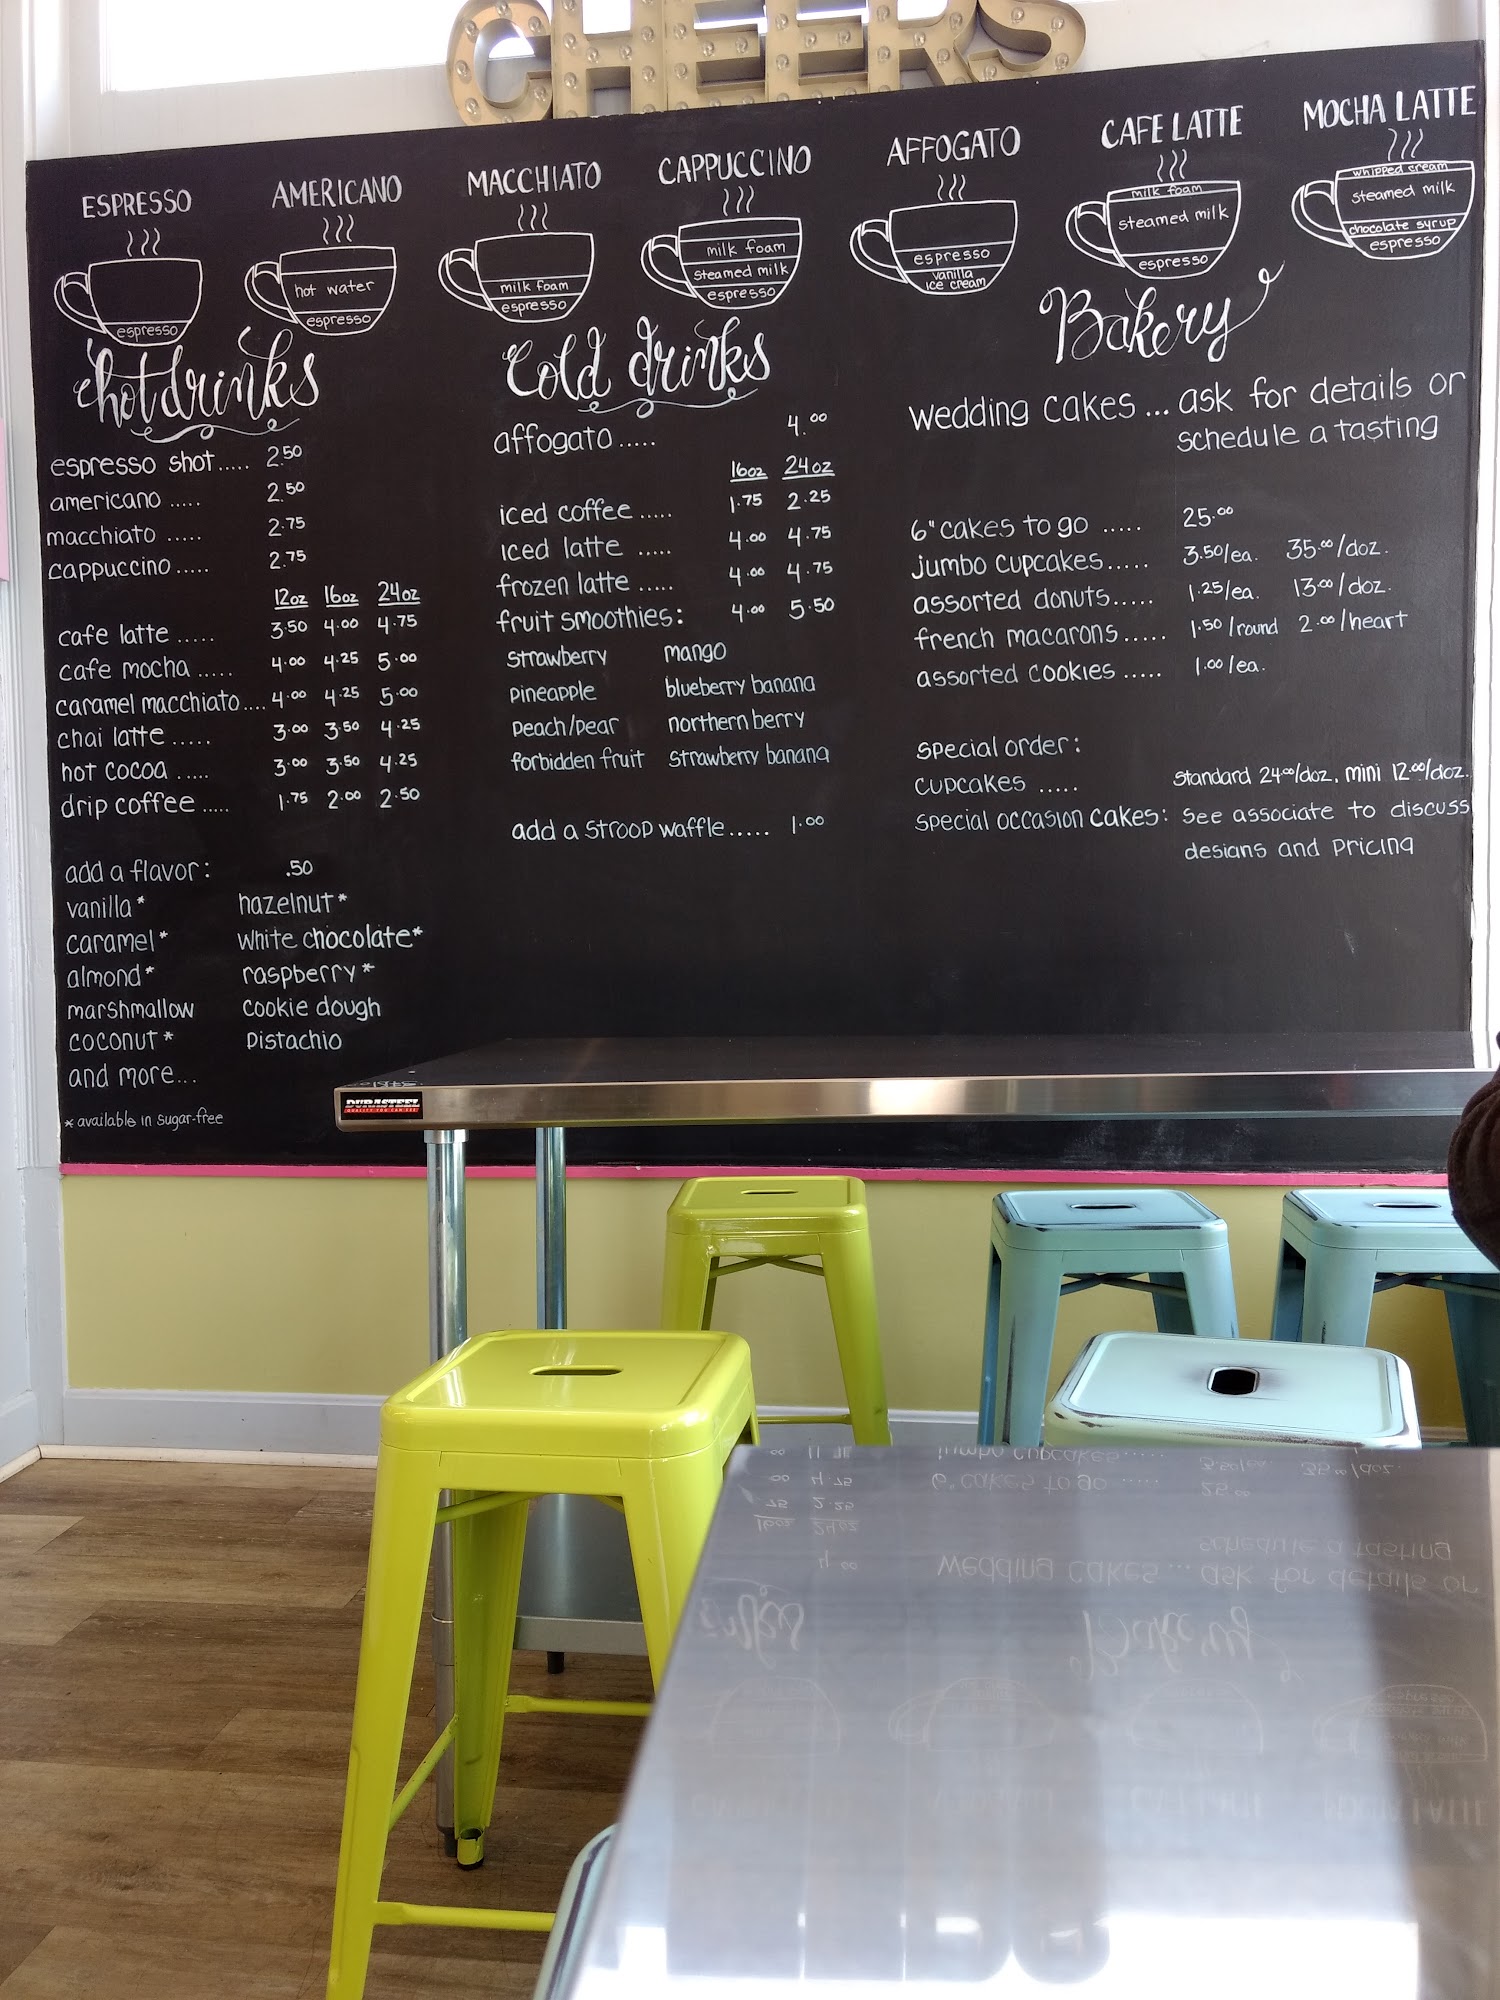 CHEERS
ESPRESSO
espresso
AMERICANO
hot water
espresso
MACCHIATO
milk foam
espresso
CAPPUCCINO
milk foam
steamed milk
espresso
AFFOGATO
espresso
vanilla
ice cream
CAFE LATTE
milk foam
steamed milk
espresso
MOCHA LATTE
whipped cream
steamed milk
chocolate syrup
espresso
hot drinks
espresso shot..... 2.50
americano ..... 2.50
macchiato ..... 2.75
cappuccino..... 2.75
12oz 16oz 24oz
cafe latte ..... 3.50 4.00 4.75
cafe mocha ..... 4.00 4.25 5.00
caramel macchiato.... 4.00 4.25 5.00
chai latte ..... 3.00 3.50 4.25
hot cocoa ..... 3.00 3.50 4.25
drip coffee ..... 1.75 2.00 2.50
add a flavor: .50
vanilla* hazelnut*
caramel* white chocolate*
almond* raspberry*
marshmallow cookie dough
coconut* pistachio
and more...
* available in sugar-free
Cold drinks
affogato ..... 4.00
16oz 24oz
iced coffee ..... 1.75 2.25
iced latte ..... 4.00 4.75
frozen latte ..... 4.00 4.75
fruit smoothies: 4.00 5.50
strawberry mango
pineapple blueberry banana
peach/pear northern berry
forbidden fruit strawberry banana
add a stroop waffle ..... 1.00
Bakery
wedding cakes ... ask for details or
schedule a tasting
6" cakes to go ..... 25.00
jumbo cupcakes..... 3.50/ea. 35.00/doz.
assorted donuts..... 1.25/ea. 13.00/doz.
french macarons ..... 1.50/round 2.00/heart
assorted cookies ..... 1.00/ea.
special order:
cupcakes ..... standard 24.00/doz, mini 12.00/doz.
special occasion cakes: see associate to discuss
designs and pricing
DURASTEEL